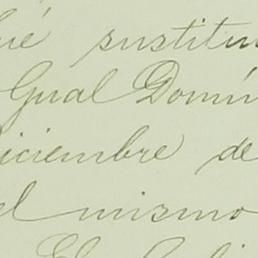 ué sustitu
Gual Domín
iciembre de
el mismo
El